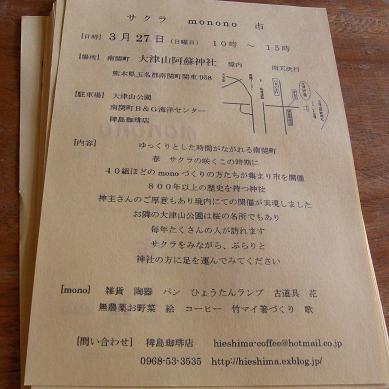 サクラ monono 市
[日時] 3月27日(日曜日) 10時 ～ 15時
[場所] 南関町 大津山阿蘇神社 境内 雨天決行
熊本県玉名郡南関町関東958
[駐車場] 大津山公園
南関町B&G海洋センター
稗島珈琲店
[内容] ゆっくりとした時間がながれる南関町
春 サクラの咲くこの時期に
40組ほどのmonoづくりの方たちが集まり市を開催
800年以上の歴史を持つ神社
神主さんのご厚意もあり境内にての開催が実現しました
お隣の大津山公園は桜の名所でもあり
毎年たくさんの人が訪れます
サクラをみながら、ぶらりと
神社の方に足を運んでみてください
[mono] 雑貨 陶器 パン ひょうたんランプ 古道具 花
無農薬お野菜 絵 コーヒー 竹マイ箸づくり 歌
[問い合わせ] 稗島珈琲店 hieshima-coffee@hotmail.com
0968-53-3535 http://hieshima.exblog.jp/